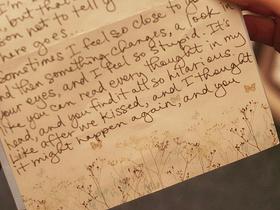 I'm
but that
ion not to tell y
here goes.
Sometimes I feel so close to yo
and then something changes, a look in
your eyes, and I feel so stupid. It's
like you can read every thought in my
head, and you find it all so hilarious.
Like after we kissed, and I thought
it might happen again, and you